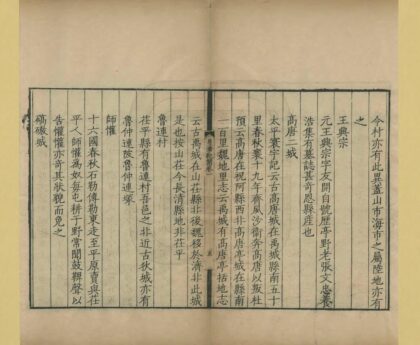 今村亦有此異蓋山市海市之屬陸地亦有
之
王興宗
元王興宗字友開自號歷亭野老張文忠養
浩集有墓誌其奇恩縣產也
高唐二城
太平寰宇記云古高唐城在禹城縣南五十
里春秋襄十九年齊夙沙衛奔高唐以叛杜
預云高唐在祝阿縣西北高唐亭城在縣南
一百里魏地里志云禹城有高唐亭括地志
云古禹城在山茌縣非後魏移於濟北此城
是也按山茌今長清縣地非茌平
魯連村
茌平縣有魯連村吾邑之非近古狄城亦有
魯仲連陂魯仲連塚
師懽
十六國春秋石勒傳勒東走至平原賣與茌
平人師懽爲奴每屯耕于野常聞鼓鞞聲以
告懽懽亦奇其狀貌而免之
碻磝城